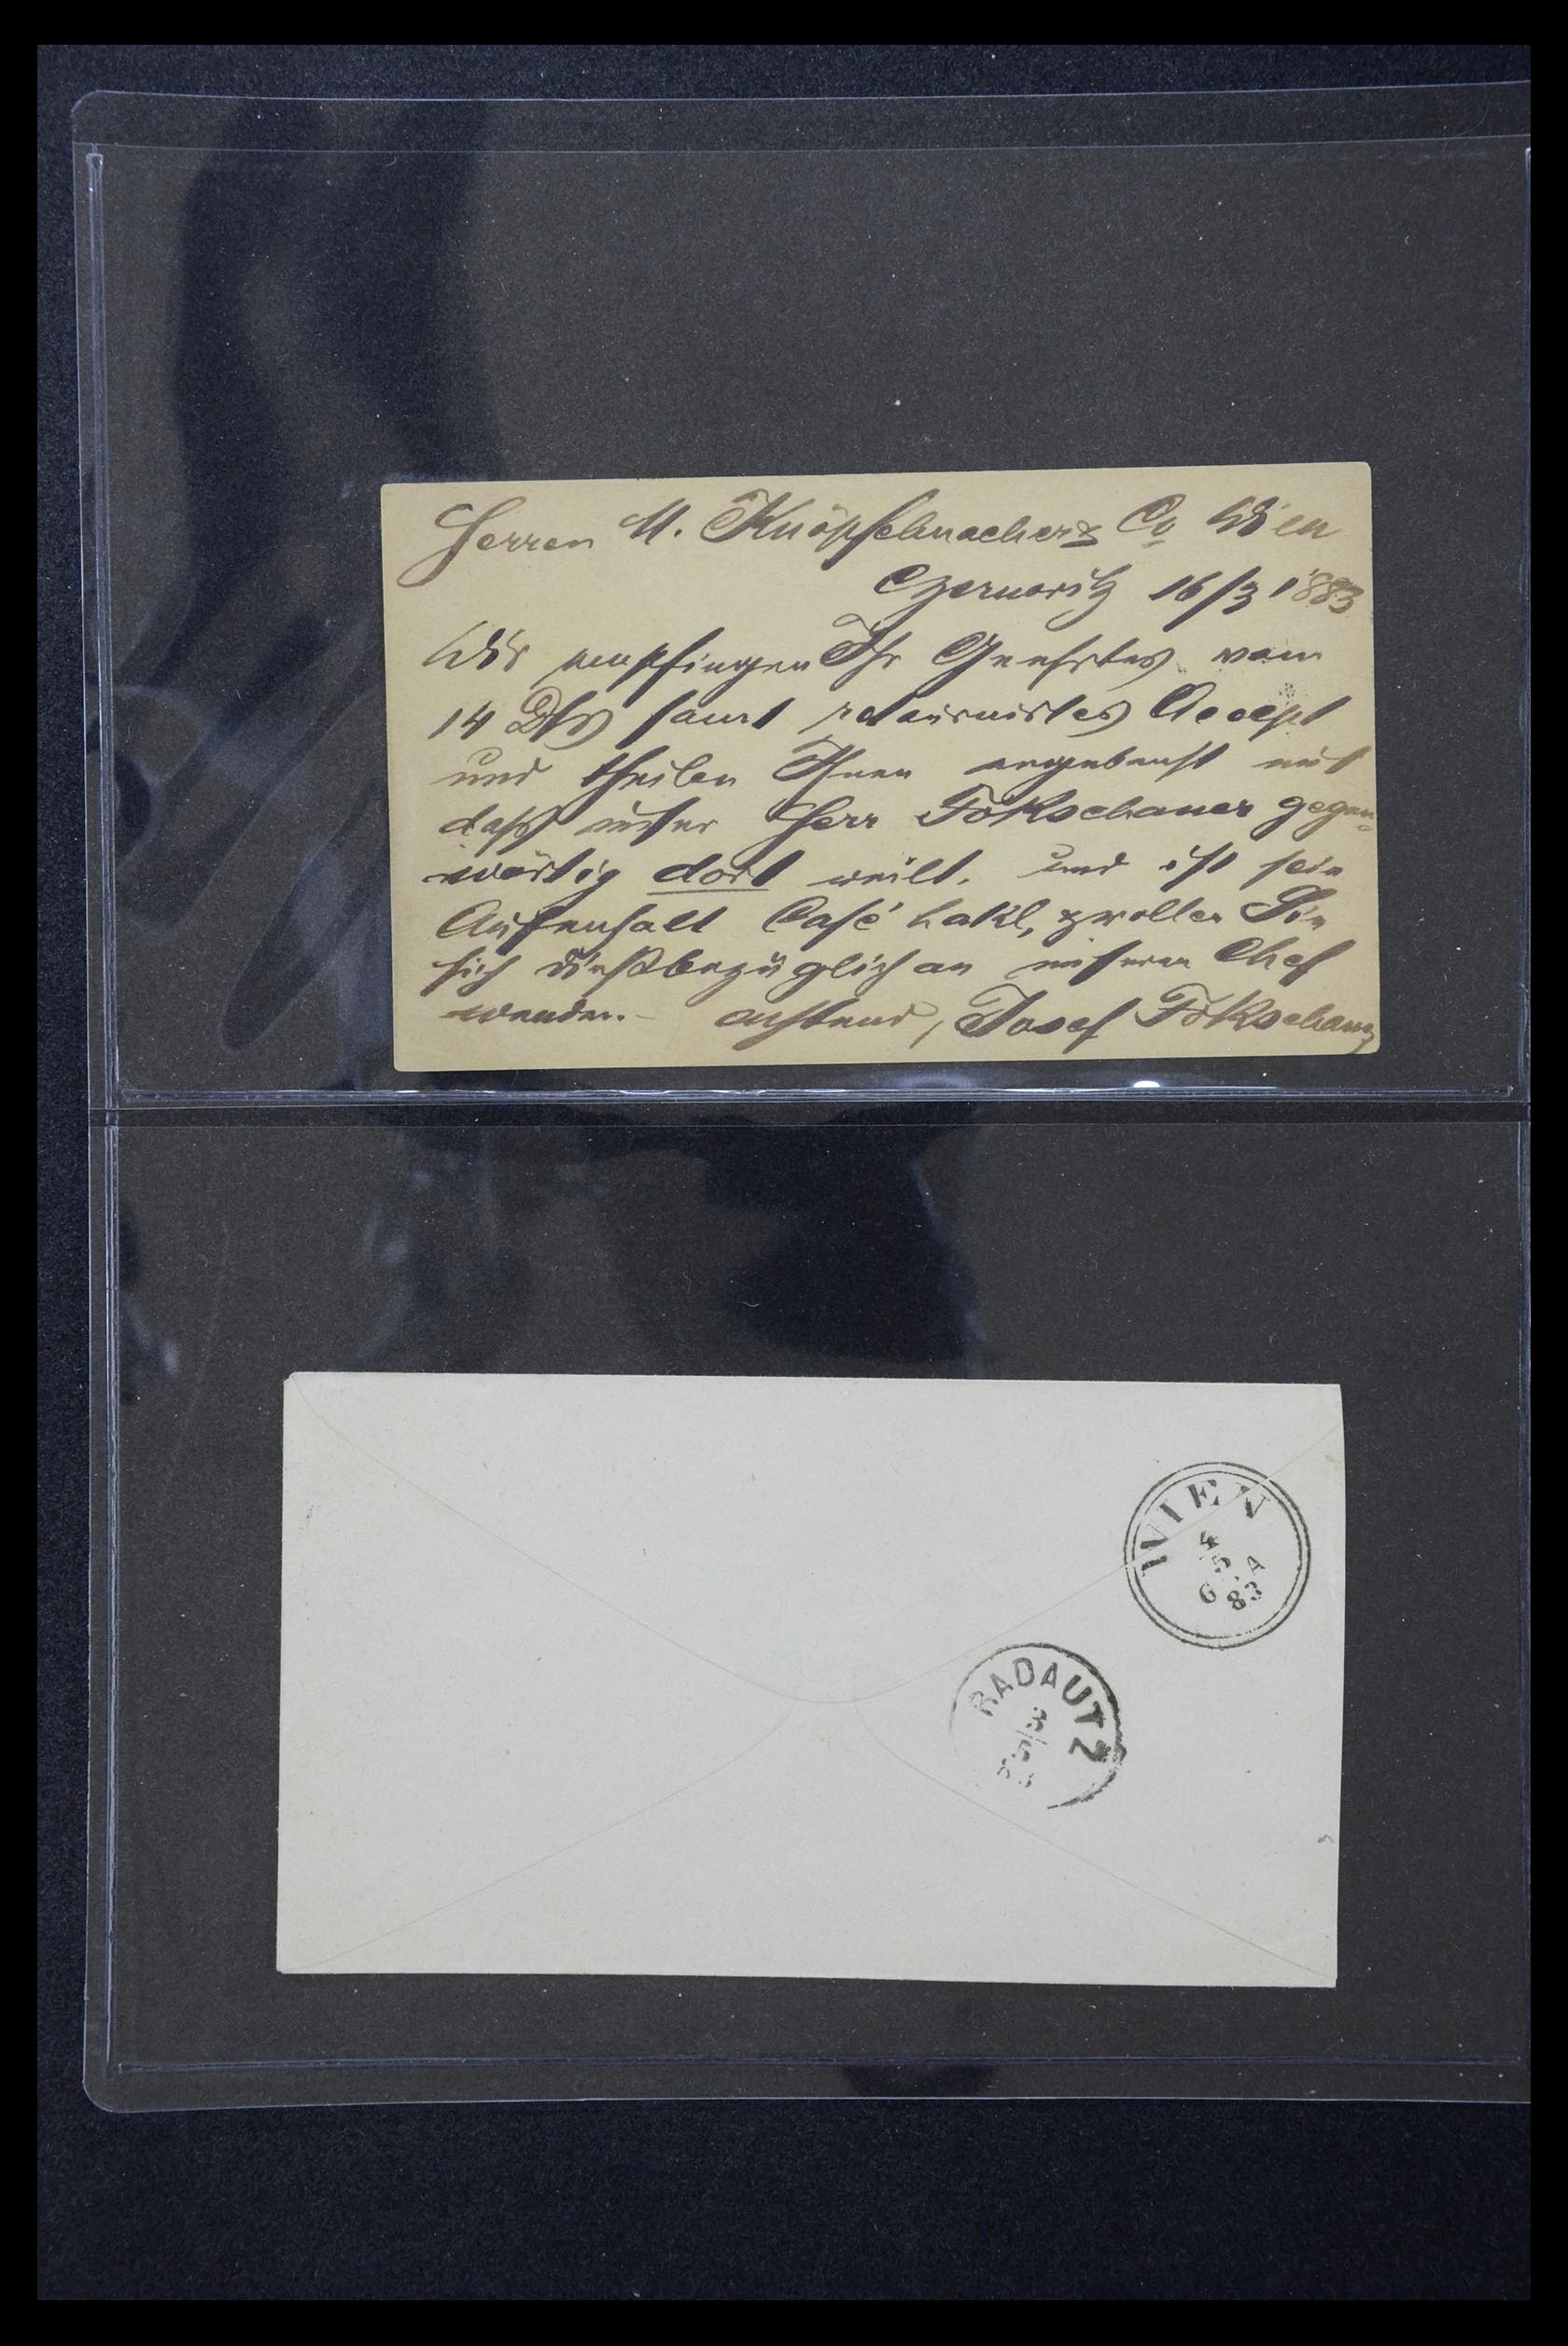 Herren M. Knöpfelmacher & Co Wien
Czernowitz 16/3 1883
Wir empfingen Ihr Geehrtes vom
14 Dſs samt retournirtes Accept
und theilen Ihnen ergebenst mit
daß unser Herr Fokschaner gegen-
wärtig dort weilt, und ist sein
Aufenhalt Café wollen Sie
sich dießbezüglich an unseren Chef
wenden.- achtend, Josef Fokschaner
WIEN
4 5 A
6 83
RADAUTZ
3/5